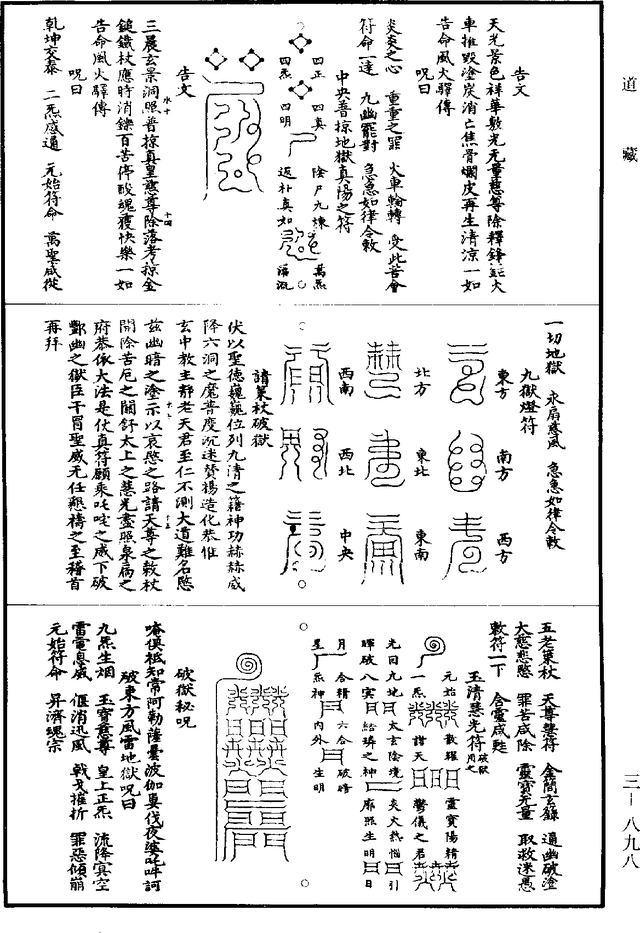 道藏
告文
天光景色 祥華敷光 无量慈尊 除釋鋒
車摧毀 塗炭消亡 焦骨爛皮 再生清涼 一如
告命 風火驛傳
呪曰
炎炎之心 重重之罪 火車輪轉 受此苦會
符命一達 九幽罷對 急急如律令敕
中央普掠地獄真陽之符
四正 四真
四炁 四明
陰尸九煉 萬炁
返朴真如
告文
三晨玄景 洞照普掠 真皇慈尊 除落考掠 金
鎚鐵杖 應時消鑠 百苦停酸 魂獲快樂 一如
告命 風火驛傳
呪曰
乾坤交泰 二炁感通 元始符命 萬聖咸從
一切地獄 永扇慈風 急急如律令敕
九獄燈符
東方
南方
西方
北方
東北
東南
西南
西北
中央
請策杖破獄
伏以聖德巍巍位列九清之籍神功赫赫威
降六洞之魔普度沉迷贊揚造化恭惟
玄中教主靜老天君至仁不測大道難名愍
茲幽暗之塗示以哀愍之路請天尊之敕杖
開除苦厄之關舒太上之慈光盡照泉扃之
府恭依大法是仗真符願乘叱咤之威下破
酆幽之獄臣干冒聖威无任懇禱之至稽首
再拜
五老策杖 天尊慧符 金簡玄籙 通幽破塗
大慈悲愍 罪苦咸除 靈寶无量 取救迷愚
敕符一下 含靈咸甦
玉清慧光符 破獄用之
元始 散耀 靈寶陽精
一炁 諸天 鬱儀之君
光回九地 太玄陰境 炎火熱惱 引
暉破八冥 結璘之神 麻照生明 日
月 合精 六合 破暗
星 炁神 內外 生明
破獄秘呪
唵俱祗知常阿勒薩曇波伽夷伐夜婆吒吽訶
破東方風雷地獄呪曰
九炁生烟 玉寶慈尊 皇上正炁 流降冥空
雷電息威 偃消迅風 戟戈摧折 罪惡傾崩
元始符命 昇濟魂宗
三-八九八